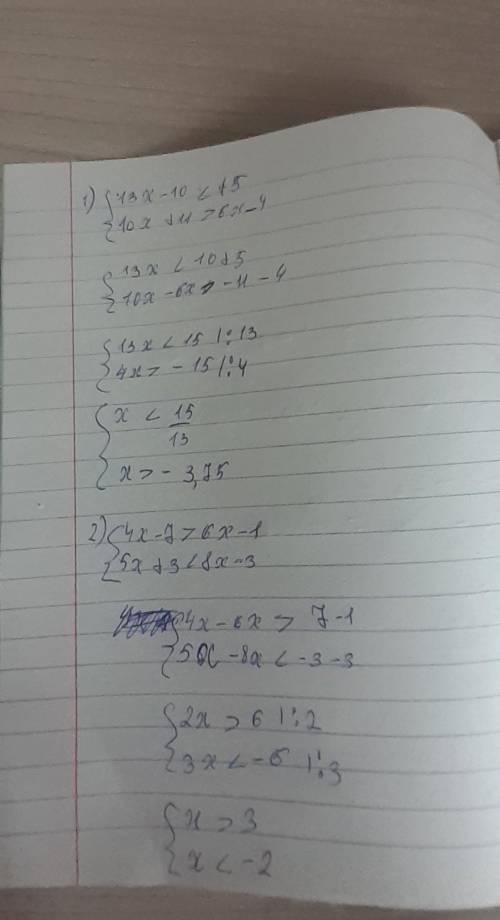 1) { 13x-10 < +5
{ 10x +11 > 6x-4
{ 13x < 10+5
{ 10x-6x > -11-4
{ 13x < 15 |:13
{ 4x > -15 |:4
{ x < 15/13
{ x > -3,75
2) { 4x-7 > 6x-1
{ 5x+3 < 8x-3
{ 4x-6x > 7-1
{ 5x-8x < -3-3
{ 2x > 6 |:2
{ 3x < -6 |:3
{ x > 3
{ x < -2